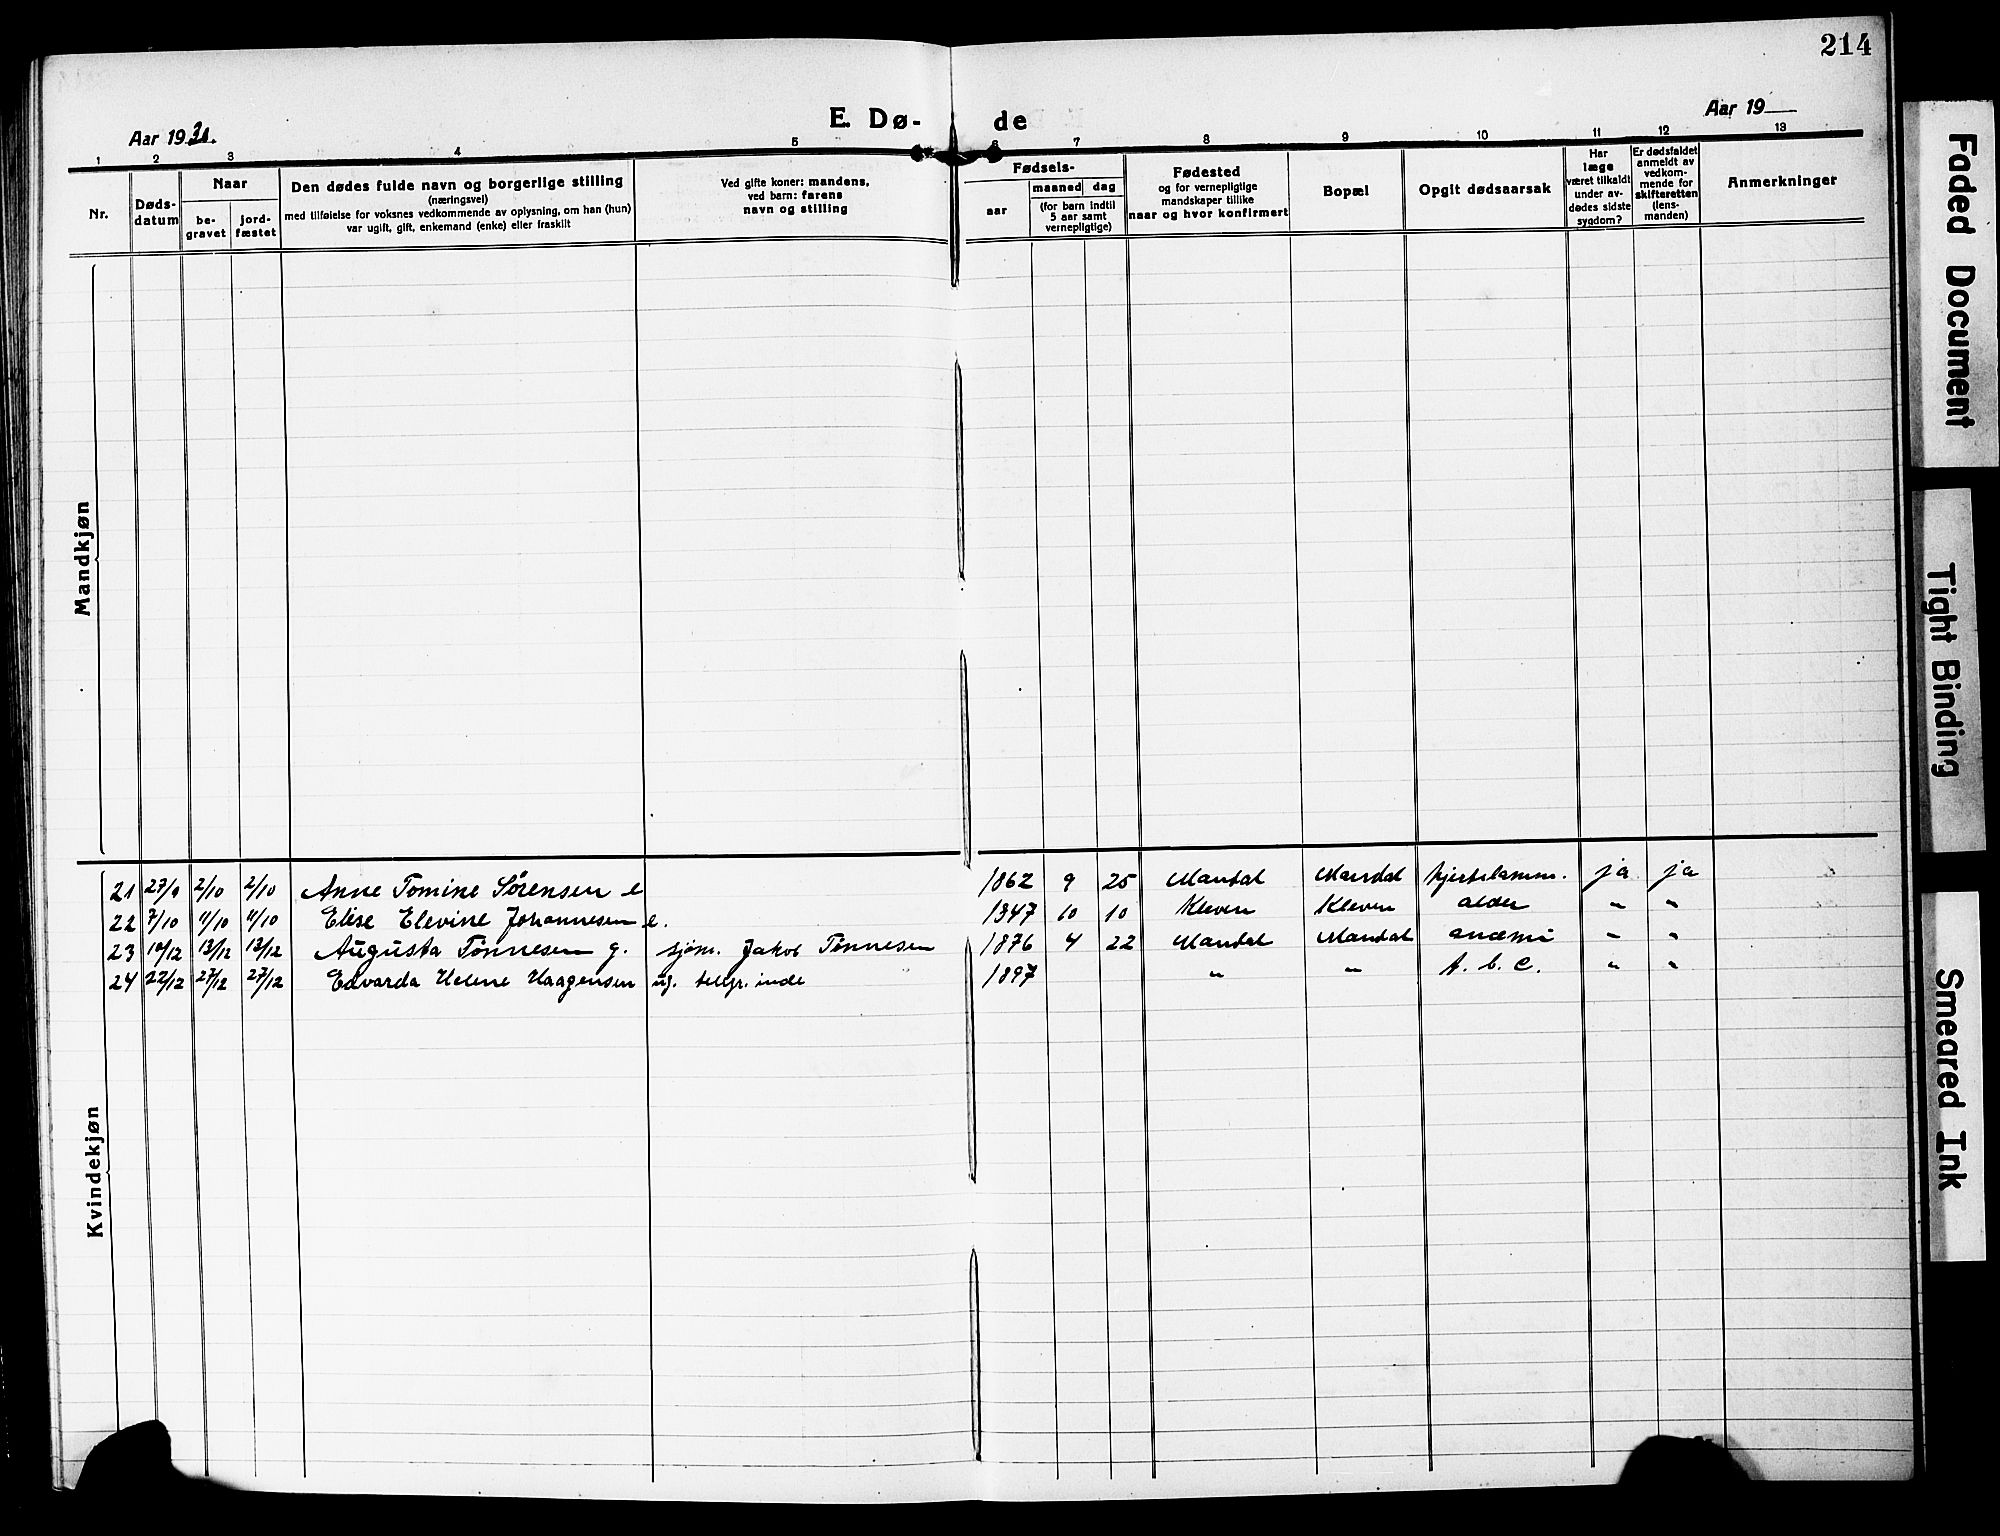 214
E. Dø- de
Aar 19
Aar 19
1 2 3 4 5 6 7 8 9 10 11 12 13
Nr.
Døds-
datum
Naar
be-
gravet
jord-
fæstet
Den dødes fulde navn og borgerlige stilling
(næringsvei)
med tilføielse for voksnes vedkommende av oplysning, om han (hun)
var ugift, gift, enkemand (enke) eller fraskilt
Ved gifte koner: mandens,
ved barn: farens
navn og stilling
Fødsels-
aar
maaned dag
(for barn indtil
5 aar samt
vernepligtige)
Fødested
og for vernepligtige
mandskaper tillike
naar og hvor konfirmert
Bopæl
Opgit dødsaarsak
Har
læge
været tilkaldt
under av-
dødes sidste
sygdom?
Er dødsfaldet
anmeldt av
vedkom-
mende for
skifteretten
(lens-
manden)
Anmerkninger
Mandkjøn
Kvindekjøn
21 27/9 2/10 2/10 Anne Tomine Sørensen e 1862 9 25 Mandal Mandal hjertelamm. ja ja
22 7/10 11/10 11/10 Elise Elevine Johannesen e. 1847 10 10 Kleven Kleven alder " "
23 10/12 13/12 13/12 Augusta Tønnesen g. sjøm. Jakob Tønnesen 1876 4 22 Mandal Mandal anæmi " "
24 22/12 27/12 27/12 Edvarda Helene Haagensen ug. telgr.inde 1897 " " t. b. c. " "
Faded Document
Tight Binding
Smeared Ink